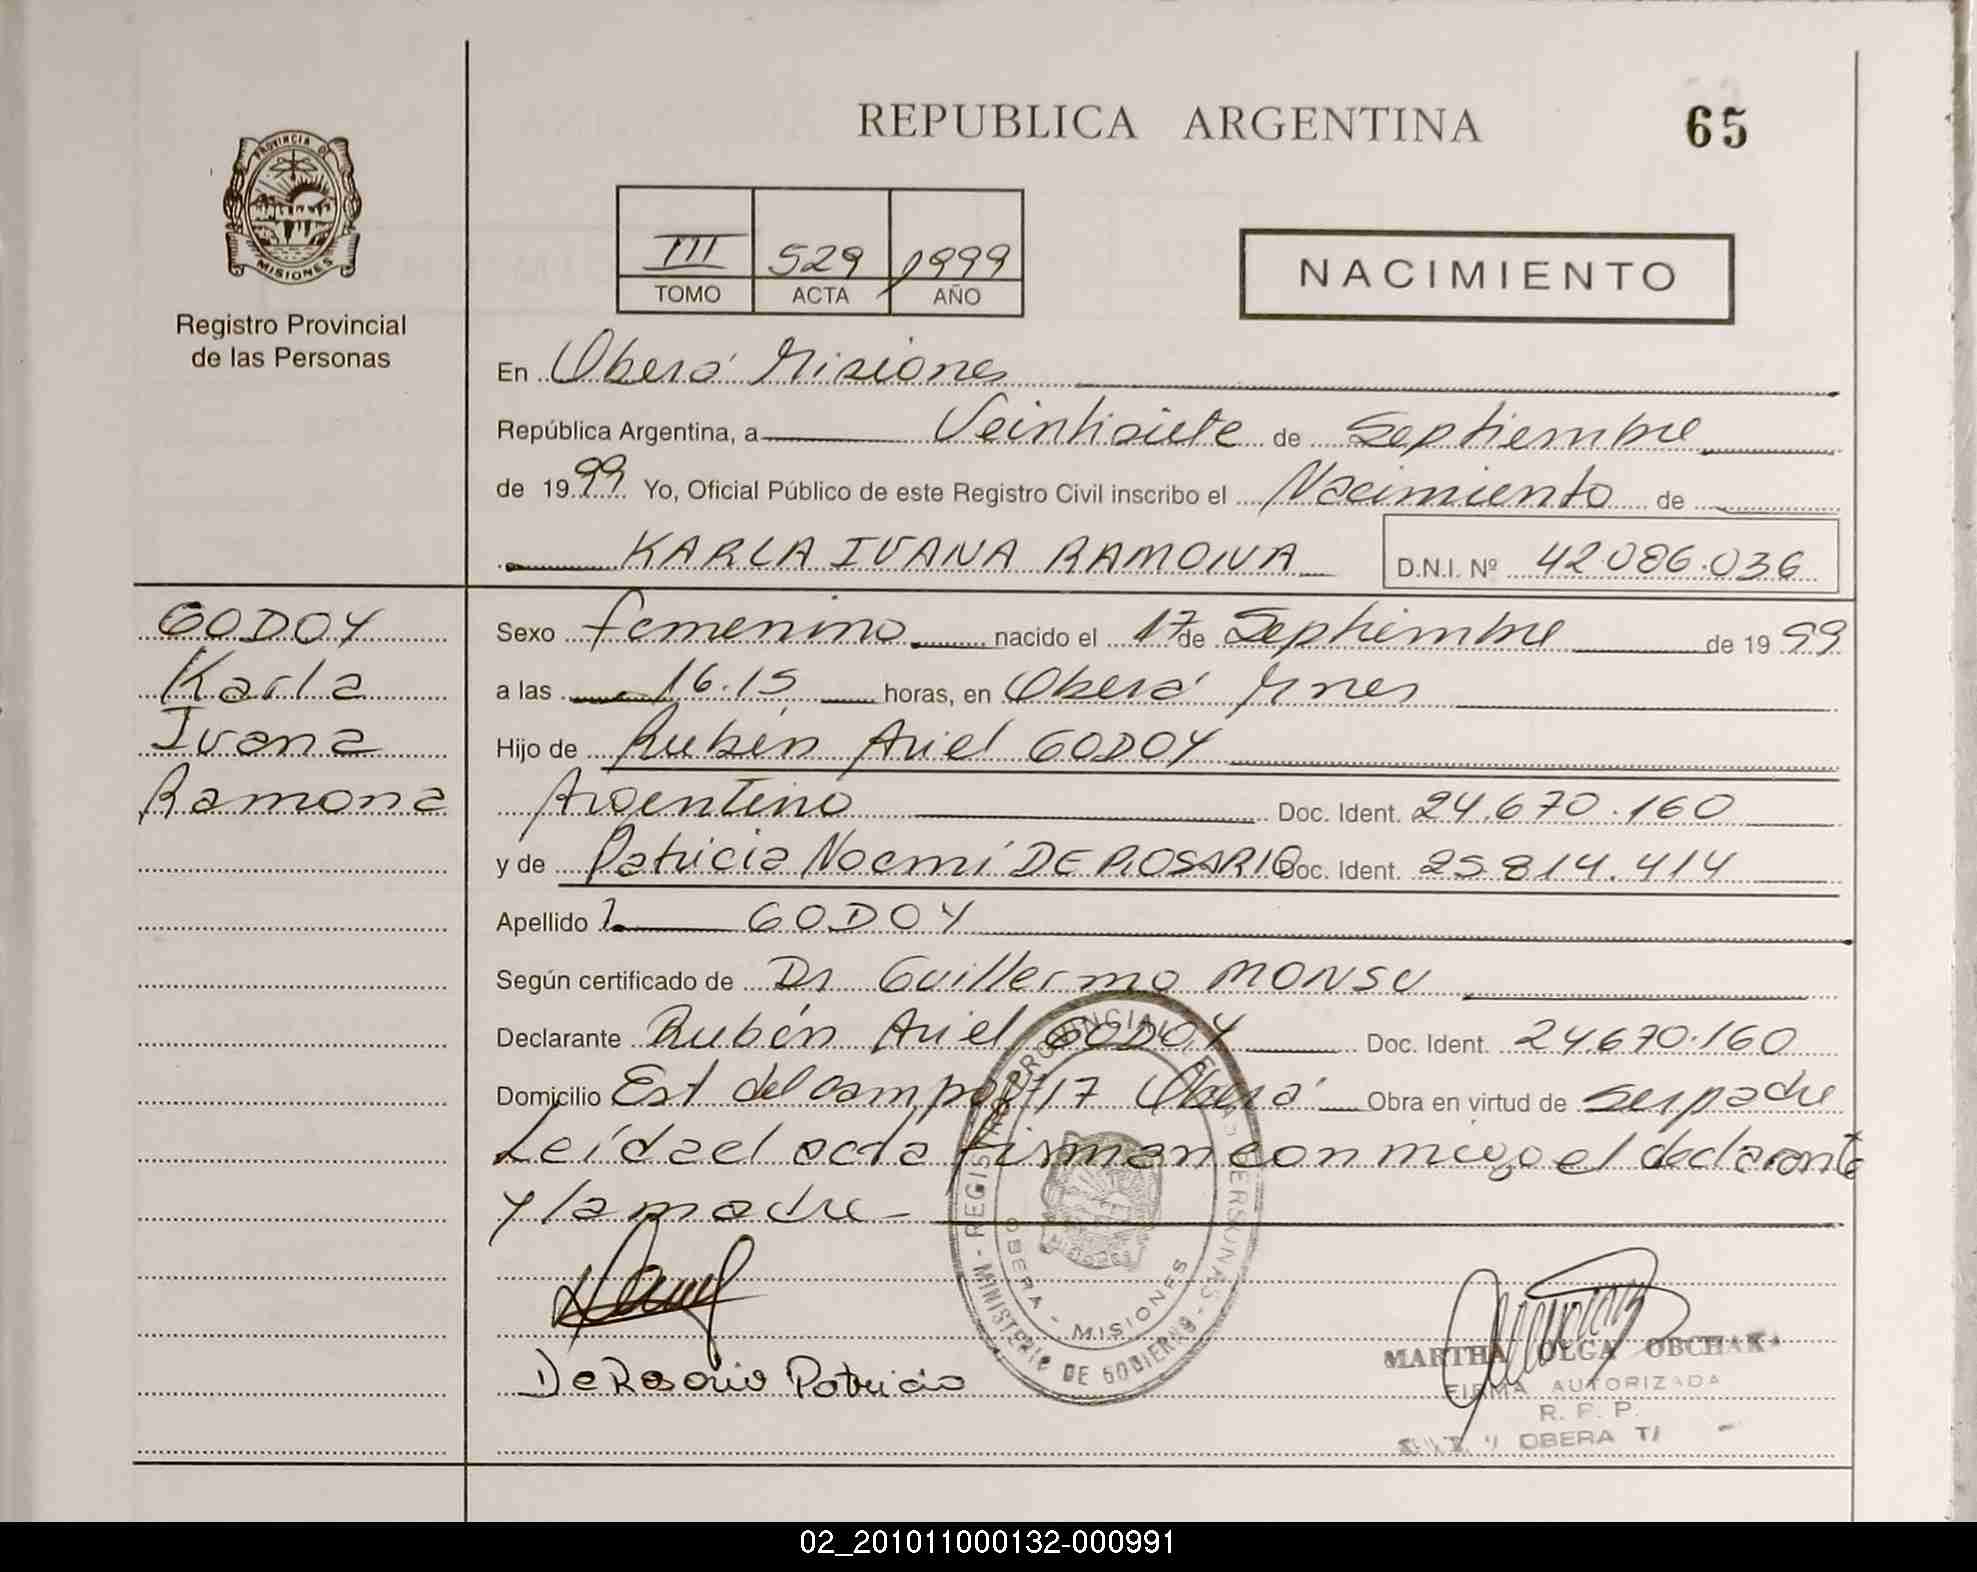 REPUBLICA ARGENTINA
65
PROVINCIA DE
MISIONES
Registro Provincial
de las Personas
III 529 1999
TOMO ACTA AÑO
NACIMIENTO
En Oberá Misiones
República Argentina, a Veintisiete de Septiembre
de 1999 Yo, Oficial Público de este Registro Civil inscribo el Nacimiento de
KARLA IVANA RAMONA D.N.I. Nº 42086.036
GODOY
Karla
Ivana
Ramona
Sexo femenino nacido el 17 de Septiembre de 1999
a las 16.15 horas, en Oberá Mnes
Hijo de Rubén Ariel GODOY
Argentino Doc. Ident. 24.670.160
y de Patricia Noemí DE ROSARIO Doc. Ident. 25.814.414
Apellido GODOY
Según certificado de Dr Guillermo MONSU
Declarante Rubén Ariel GODOY Doc. Ident. 24.670.160
Domicilio Est del campo 717 Oberá Obra en virtud de ser padre
Leída el acta firman conmigo el declarante
y la madre
REGISTRO PROVINCIAL DE LAS PERSONAS
MINISTERIO DE GOBIERNO
OBERA - MISIONES
De Rosario Patricia
MARTHA OLGA OBCHAK
FIRMA AUTORIZADA
R. P. P.
OBERA
02_201011000132-000991